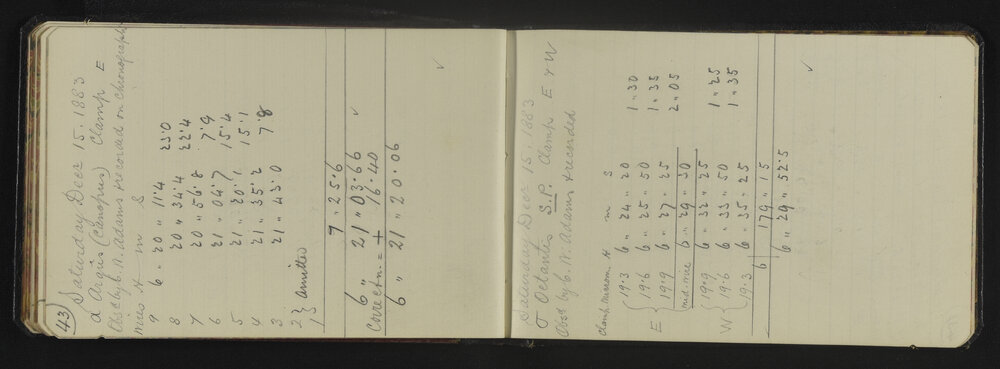 43
Saturday Decr 15. 1883
α Argus (Canopus) Clamp E
Obs by C. W. Adams & recorded on chronograph
Wires H m S
9 6 " 20 " 11.4 23.0
8 20 " 34.4 22.4
7 20 " 56.8 7.9
6 21 " 04.7 15.4
5 21 " 20.1 15.1
4 21 " 35.2 7.8
3 21 " 43.0
2 } omitted
1
7 " 25.6
6 " 21 " 03.66 ✓
Correctn. = + 16.40
6 " 21 " 20.06
✓
Saturday Decr 15, 1883
σ Octantis S.P. Clamp E & W
Obsd by C. W. Adams & recorded
H m S
E { 19.3 6 " 24 " 20 1 " 30
19.6 6 " 25 " 50 1 " 35
19.9 6 " 27 " 25 2 " 05
mid. wire 6 " 29 " 30
W { 19.9 6 " 32 " 25 1 " 25
19.6 6 " 33 " 50 1 " 35
19.3 6 " 35 " 25
6 179 " 15
6 " 29 " 52.5
✓